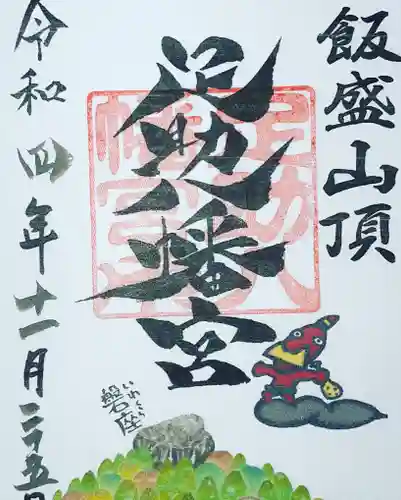 飯盛山頂
足助八幡宮
いわくら
磐座
令和四年十一月二十五日